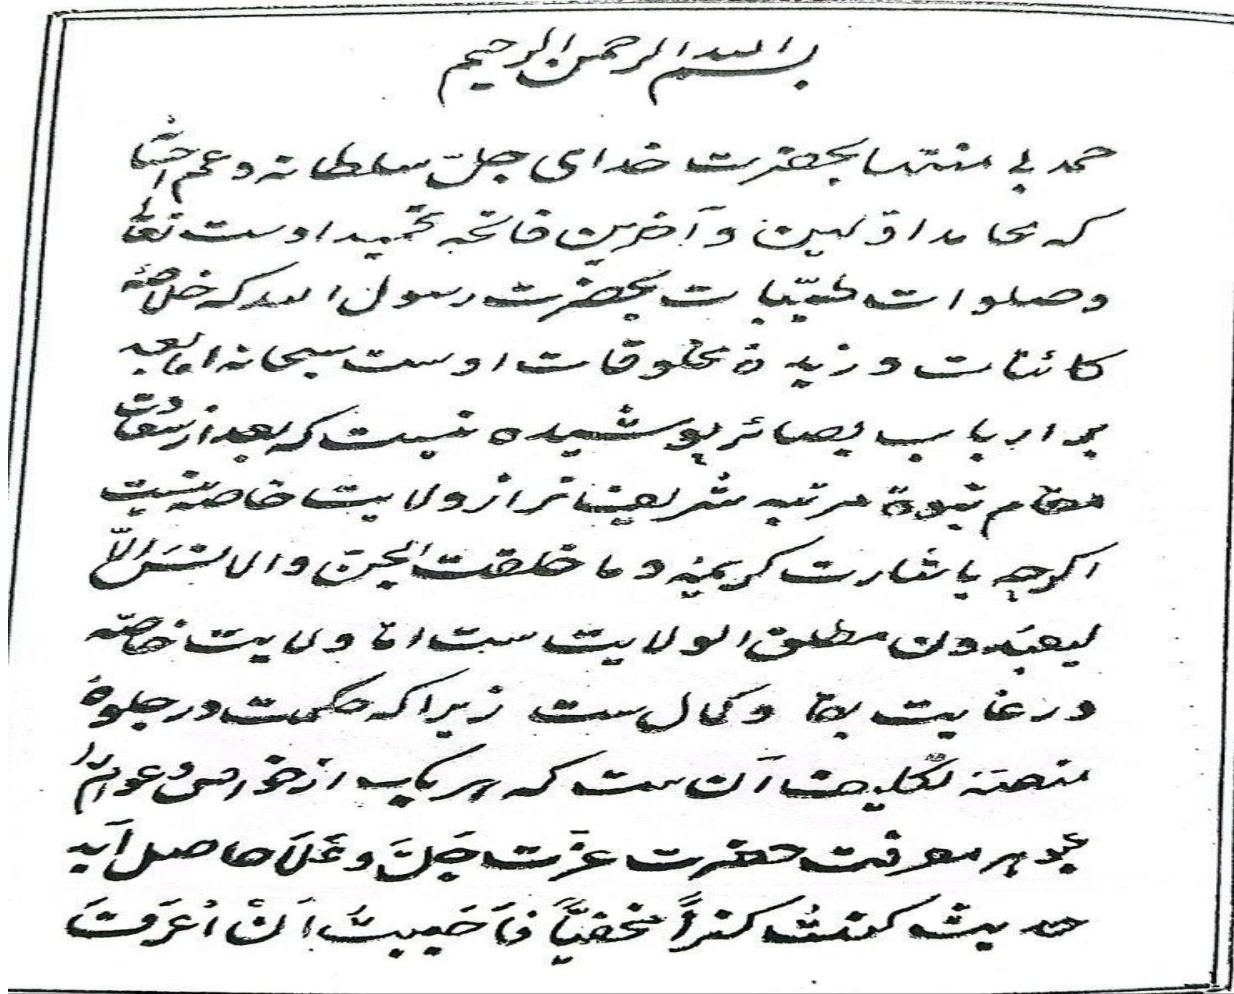 بسم الله الرحمن الرحیم
حمد بے منتہا بحضرت خدای جلّ سلطانہ و عم احسانہ
کہ محامد اوّلین و آخرین فاتحہ تحمید اوست تعالٰی
و صلوات طیّبات بحضرت رسول اللہ کہ خلاصۂ
کائنات و زبدۂ مخلوقات اوست سبحانہ اما بعد
بر ارباب بصائر پوشیدہ نیست کہ بعد از رفعت
مقام نبوۃ مرتبہ شریف تر از ولایت خاصہ نیست
اگرچہ باشارت کریمۂ وما خلقت الجنّ والانسَ الّا
لیعبدون مطلق الولایت ست امّا ولایت خاصّہ
در غایت و کمال ست زیرا کہ حکمت در جلوۂ
منصّۂ تکلیف آن ست کہ ہر یک از خواص و عوام را
جوہر معرفت حضرت عزّت جَلَّ وعَلَا حاصل آید
حدیث کنتُ کنزاً مخفیّاً فاَحَببتُ اَنْ اُعرَفَ